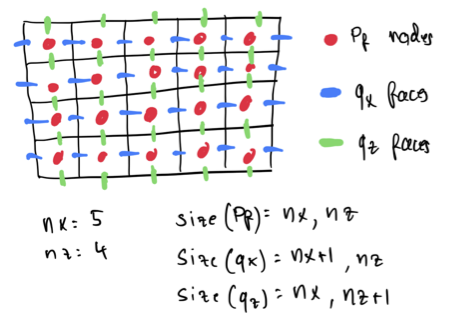 Pf nodes
qx faces
qz faces
nx = 5
nz = 4
size (Pf) = nx, nz
size (qx) = nx+1, nz
size (qz) = nx, nz+1